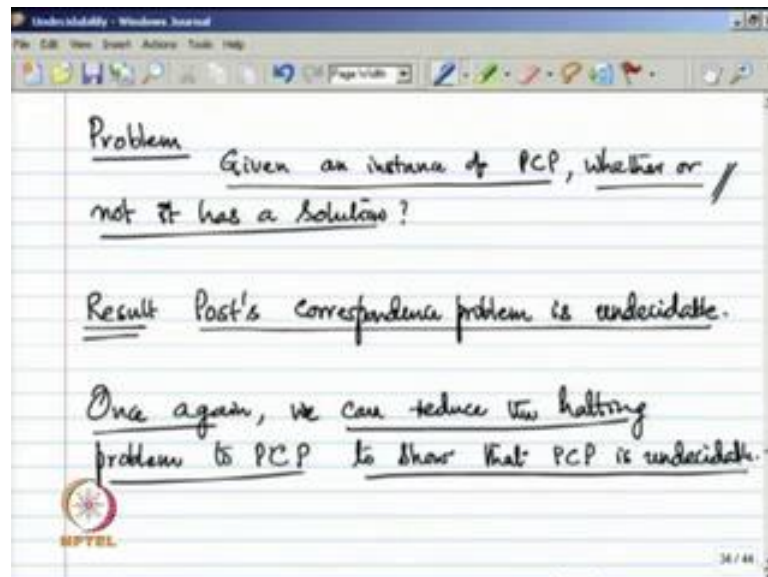 Undecidability - Windows Journal
File Edit View Insert Actions Tools Help
Page Width
Problem
Given an instance of PCP, whether or
not it has a solution?
Result Post's correspondence problem is undecidable.
Once again, we can reduce the halting
problem to PCP to show that PCP is undecidable.
NPTEL
34/44